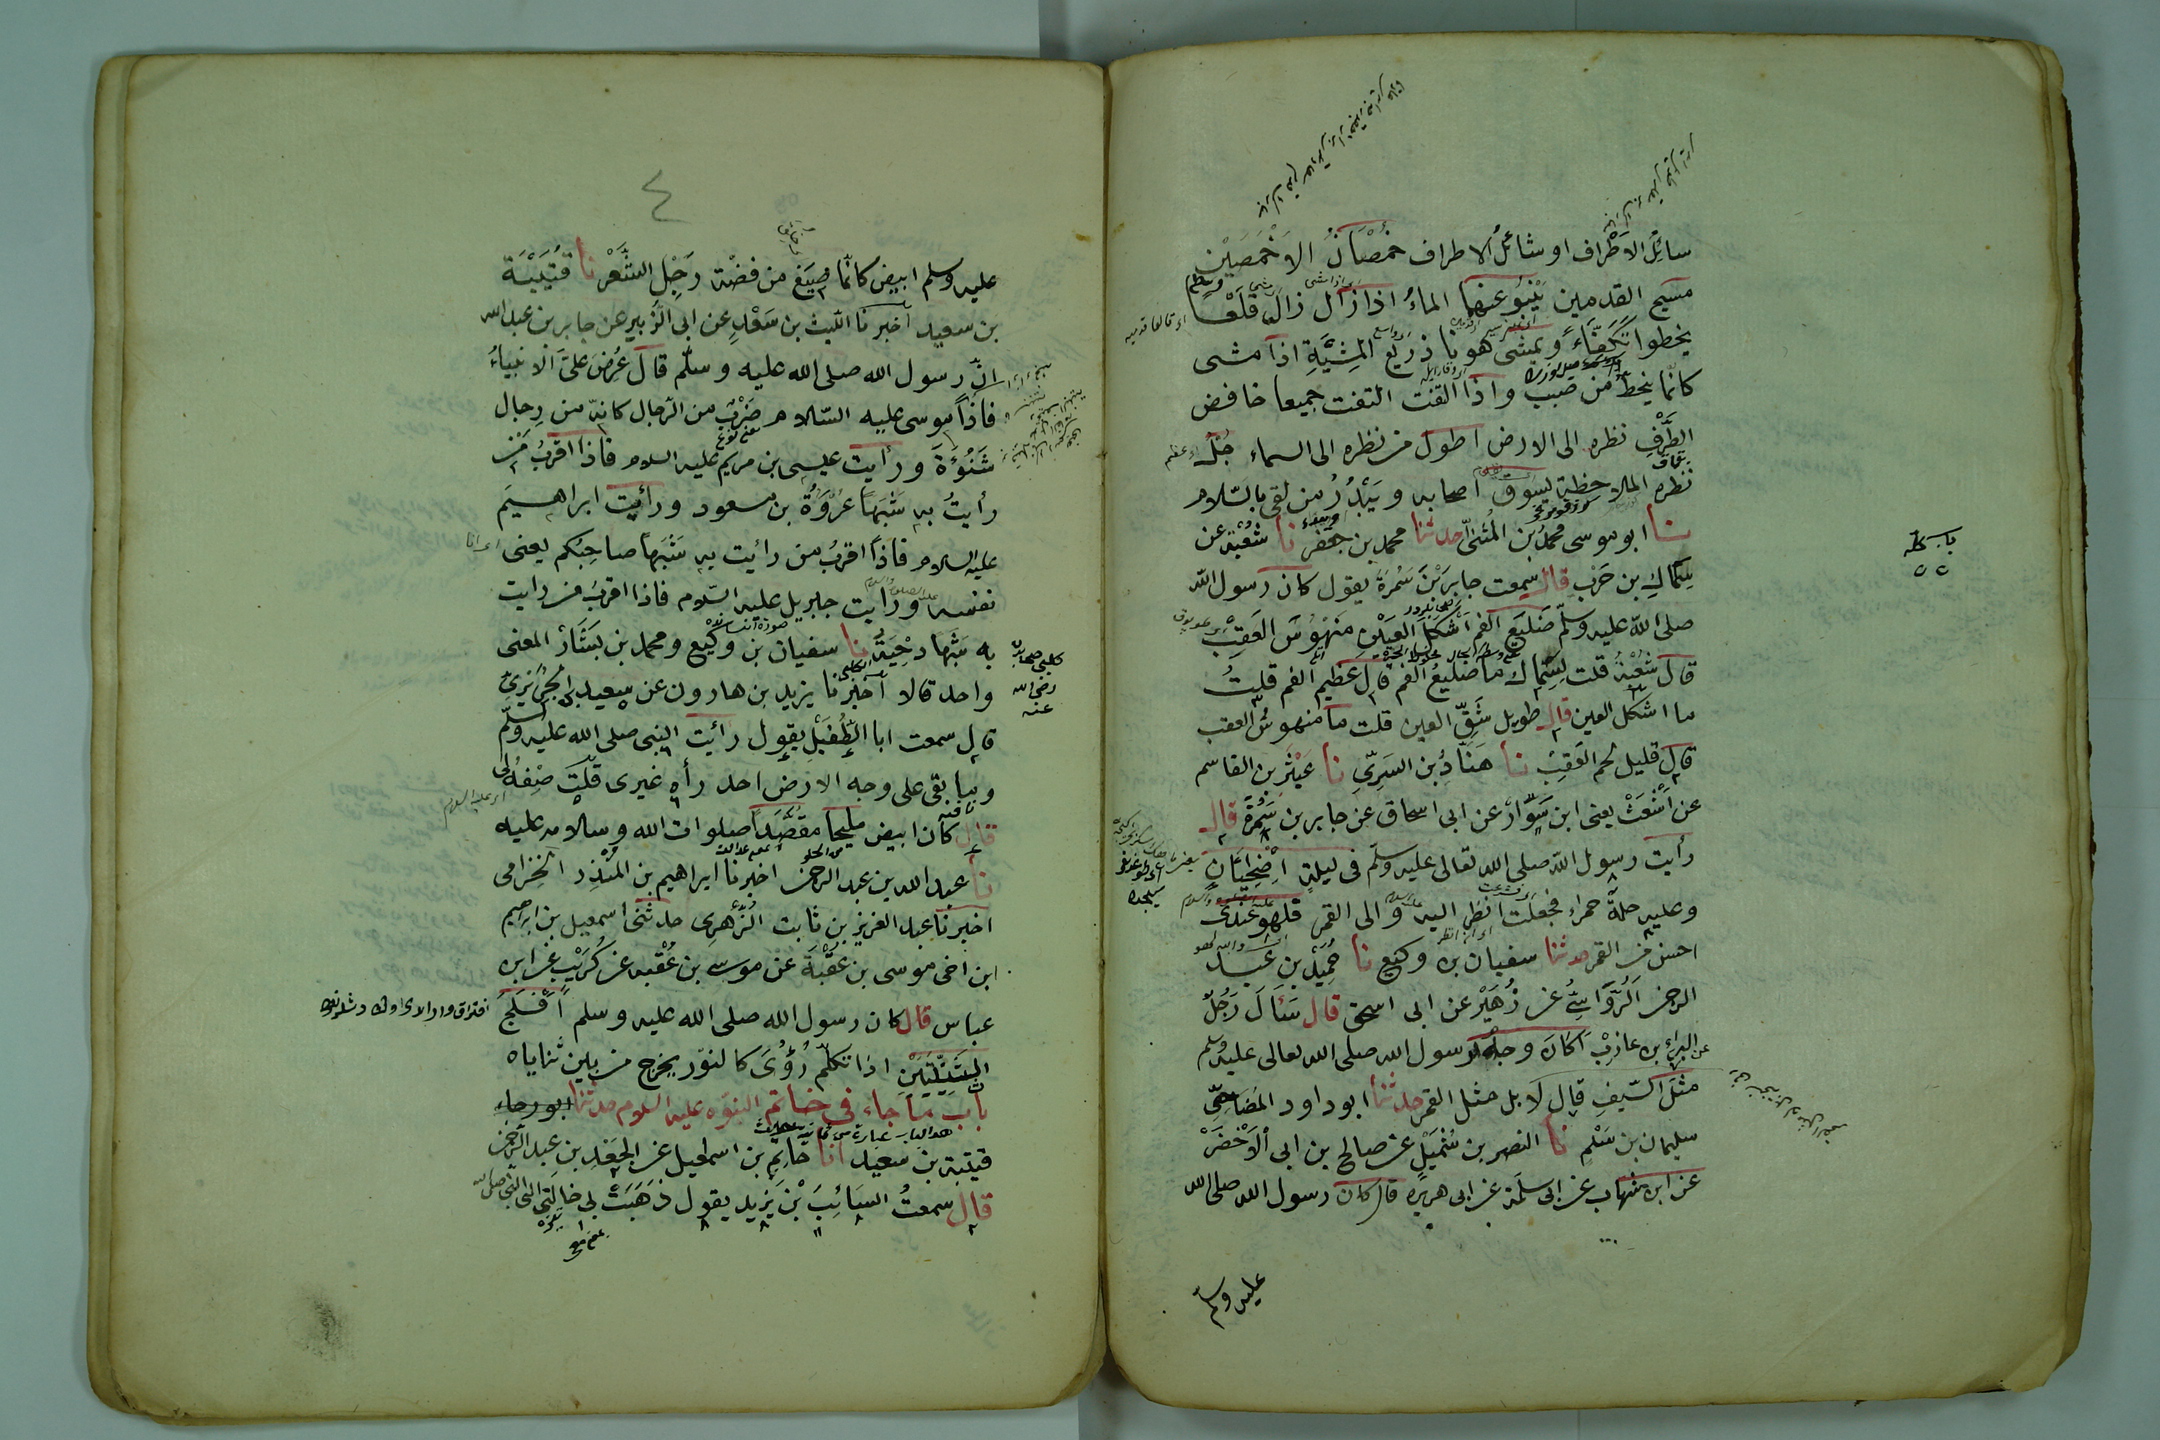 سائِلُ الاَطْراف او شائلُ الاطراف خُمْصَانُ الاَخْمَصَيْنِ
مسيح القدمين يَنْبُوُ عنهما الماءُ اذا زال زالَ قَلَعًا
يخطوا تَكَفِّاءً ويمشى هَونا ذَرِيْعُ المِشْيَةِ اذا مشى
كانّما ينحط من صبب واذا التفت التفت جميعا خافض
الطَّرْفِ نظره الى الارض اطول من نظره الى السماء جُلُّ
نظره الملاحظة يسوق اصحابه ويَبْدُرُ من لقى بالسّلام
نا ابو موسى محمدُ بن المُثنّى حدثنا محمد بن جعفر نا شعْبة عن
سِماكِ بن حَرْبٍ قال سمعت جابرَ بْنَ سَمُرَةَ يقول كان رسول اللّه
صلى اللّه عليه وسلّم ضَليعَ الفم اَشْكَلَ العينِ مَنْهُوُسَ العَقِبْ
قال شُعْبَة قلت لِسِماك ما ضليعُ الفم قال عظيم الفم قلت
ما اشكل العين قال طويل شَقِّ العين قلت ما منهوسُ العقب
قال قليل لحم العَقِبْ نا هَنّادُ بن السَرِيِّ نا عَبْثَر بن القاسم
عن اَشْعَثْ يعنى ابن سَوّارْ عن ابى اسحاق عن جابر بن سَمُرَةَ قال
رأيت رسول اللّه صلى الله تعالى عليه وسلّم فى ليلة اِضْحِيَانٍ
وعليه حلة حمراء فجعلت انظر اليه والى القمر فلهو عندى
احسن من القمر حدثنا سفيان بن وكيع نا حُمَيْد بن عبد
الرحمن الرُّؤاسِىُّ عن زُهَيْر عن ابى اسحق قال سَئَالَ رَجُلٌ
البراء بن عازبْ اَكَانَ وجهُ رسول الله صلى الله تعالى عليه وسلم
مثلَ السّيفِ قال لَا بل مثل القمر حدثنا ابو داود المَصَاحِفِىِّ
سليمان بن سَلْمٍ نا النصر بن شُمَيْلٍ عن صالح بن ابى اْلاَخْضَرْ
عن ابن شهاب عن ابى سلمة عن ابى هريرة قال كان رسول الله صلى الله
عليه وسلّم
٤
عليه وسلم ابيض كانّما صِيْغَ من فضّة رَجِلَ الشَّعْر نا قُتَيْبَة
بن سعيد اخبرنا اللّيث بن سَعْدٍ عن ابى الزُّبير عن جابر بن عبد الله
انّ رسول الله صلى الله عليه وسلّم قال عُرِضَ علىَّ الانبياءُ
فاذاً موسى عليه السّلام ضَرْبٌ من الرّجال كانه من رجال
شَنُوُءَةَ ورأيت عيسى بن مريم عليه السلام فاذا اقربُ مَنْ
رأيتُ به شَبَهاً عُرْوَةُ بن مسعود ورأيت ابراهيمَ
عليه السلام فاذاً اقربُ من رأيت به شَبَهاً صاحِبُكم يعنى
نفسه ورأيت جبريل عليه السّلام فاذا اقربُ من رايت
به شَبَهًا دِحْيَةُ نا سفيان بن وكيع ومحمد بن بَشّارْ المعنى
واحد قالا اخبرنا يزيد بن هارون عن سعيد الجُرَيْرِىِّ
قال سمعت ابا الطّفَيْلِ يقول رأيت النبى صلى الله عليه وسلّم
وما بقى على وجه الارض احد رأه غيرى قلت صِفْهُ لى
قال كان ابيض مليحًا مقصّداً صلوات الله وسلامه عليه
نا عبد الله بن عبد الرحمن اخبرنا ابراهيم بن المُنْذِر الحِزامى
اخبرنا عبد العزيز بن ثابت الزُّهرى حدثنى اسمعيل بن ابراهيم
ابن اخى موسى بن عُقْبَةَ عن موسى بن عُقْبه عن كُرَيْبٍ عن ابن
عباس قال كان رسول الله صلى الله عليه وسلم اَفْلَجَ
الثَّنِيَّتَيْنِ اذا تكلّم رُؤُىَ كالنّور يخرج من بين ثناياه
باب ما جاء فى خاتم النبوّه عليه السلام حدثنا ابو رجاء
قتيبة بن سعيد انا حاتم بن اسمعيل عن الجَعْدِ بن عبد الرحمن
قال سمعتُ السَائِبَ بْنَ يَزِيد يقول ذَهَبَتْ بى خالَتى الى النّبى صلى الله
كلبى صحابى
رضى الله
عنه